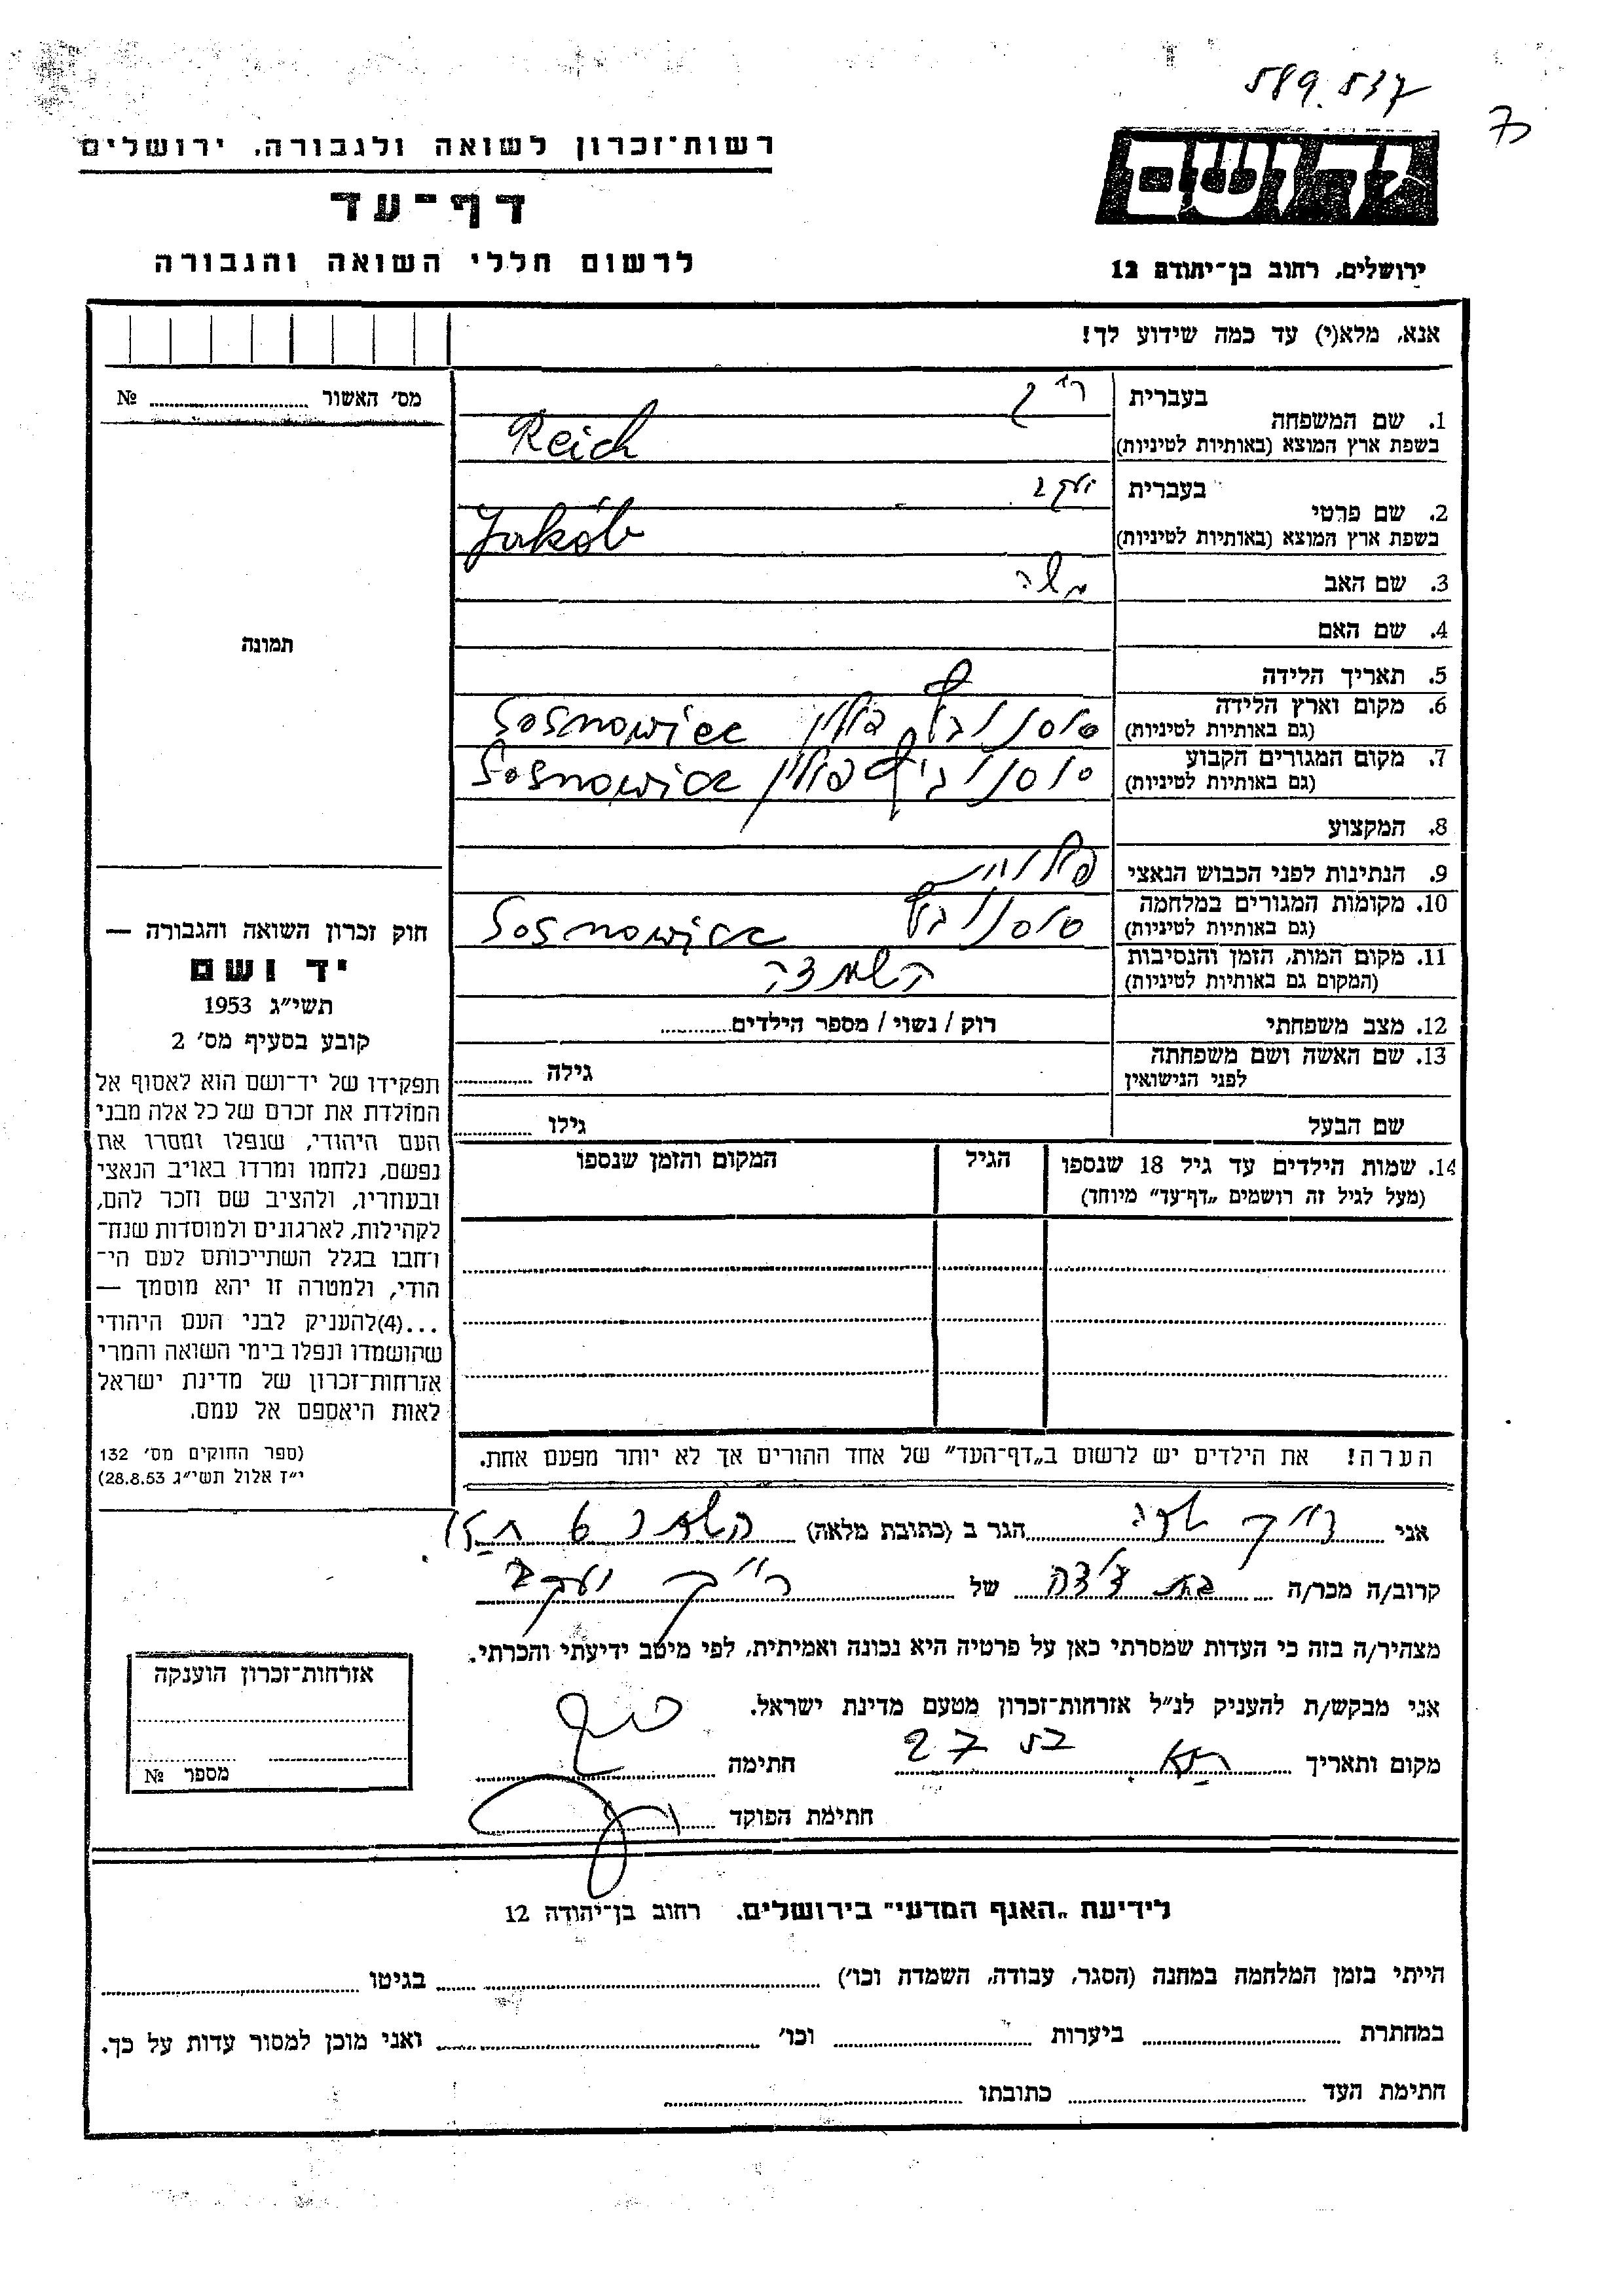 589.537
יד ושם
רשות־זכרון לשואה ולגבורה, ירושלים
דף־עד
לרשום חללי השואה והגבורה
ירושלים, רחוב בן־יהודה 12
אנא, מלא(י) עד כמה שידוע לך!
מס׳ האשור № ....................
1. שם המשפחה
בעברית רייך
בשפת ארץ המוצא (באותיות לטיניות) Reich
2. שם פרטי
בעברית יעקב
בשפת ארץ המוצא (באותיות לטיניות) Jakób
3. שם האב משה
4. שם האם
תמונה
5. תאריך הלידה
6. מקום וארץ הלידה
(גם באותיות לטיניות) סוסנוביץ פולין Sosnowiec
7. מקום המגורים הקבוע
(גם באותיות לטיניות) סוסנוביץ פולין Sosnowiec
8. המקצוע
9. הנתינות לפני הכבוש הנאצי פולנית
10. מקומות המגורים במלחמה
(גם באותיות לטיניות) סוסנוביץ Sosnowiec
11. מקום המות, הזמן והנסיבות
(המקום גם באותיות לטיניות) השמדה
12. מצב משפחתי רוק / נשוי / מספר הילדים............
13. שם האשה ושם משפחתה
לפני הנישואין גילה ............
שם הבעל גילו ............
14. שמות הילדים עד גיל 18 שנספו
(מעל לגיל זה רושמים „דף־עד״ מיוחד)
הגיל
המקום והזמן שנספו
הערה! את הילדים יש לרשום ב„דף־העד״ של אחד ההורים אך לא יותר מפעם אחת.
חוק זכרון השואה והגבורה —
יד ושם
תשי״ג 1953
קובע בסעיף מס׳ 2
תפקידו של יד־ושם הוא לאסוף אל
המולדת את זכרם של כל אלה מבני
העם היהודי, שנפלו ומסרו את
נפשם, נלחמו ומרדו באויב הנאצי
ובעוזריו, ולהציב שם וזכר להם,
לקהילות, לארגונים ולמוסדות שנח־
רחבו בגלל השתייכותם לעם הי־
הודי, ולמטרה זו יהא מוסמך —
...(4)להעניק לבני העם היהודי
שהושמדו ונפלו בימי השואה והמרי
אזרחות־זכרון של מדינת ישראל
לאות היאספם אל עמם.
(ספר החוקים מס׳ 132
י״ז אלול תשי״ג 28.8.53)
אני רייך הגר ב (כתובת מלאה) 6
קרוב/ה מכר/ה בת דודה של רייך יעקב
מצהיר/ה בזה כי העדות שמסרתי כאן על פרטיה היא נכונה ואמיתית, לפי מיטב ידיעתי והכרתי.
אני מבקש/ת להעניק לנ״ל אזרחות־זכרון מטעם מדינת ישראל.
מקום ותאריך ............ חתימה ............
חתימת הפוקד ............
אזרחות־זכרון הוענקה
מספר №
לידיעת „האגף המדעי״ בירושלים. רחוב בן־יהודה 12
הייתי בזמן המלחמה במחנה (הסגר, עבודה, השמדה וכו׳) ............ בגיטו ............
במחתרת ............ ביערות ............ וכו׳ ............ ואני מוכן למסור עדות על כך.
חתימת העד ............ כתובתו ............